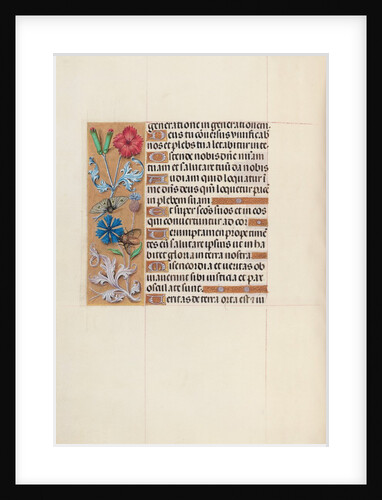 generatione in generationem
Deus tu conversus vivificab
nos et plebs tua letabitur in te
Ostende nobis dñe miam
tuam et salutare tuũ da nobis
Audiam quid loquatur i
me dñs deus qm loquetur pace
in plebem suam
Et super scõs suos et in eos
qui convertuntur ad cor
Verumptamen prope time
tes eũ salutare ipsius ut in ha
bitet gloria in terra nostra
Misericordia et veritas ob
viaverunt sibi iusticia et pax
osculate sunt
Veritas de terra orta est et iu